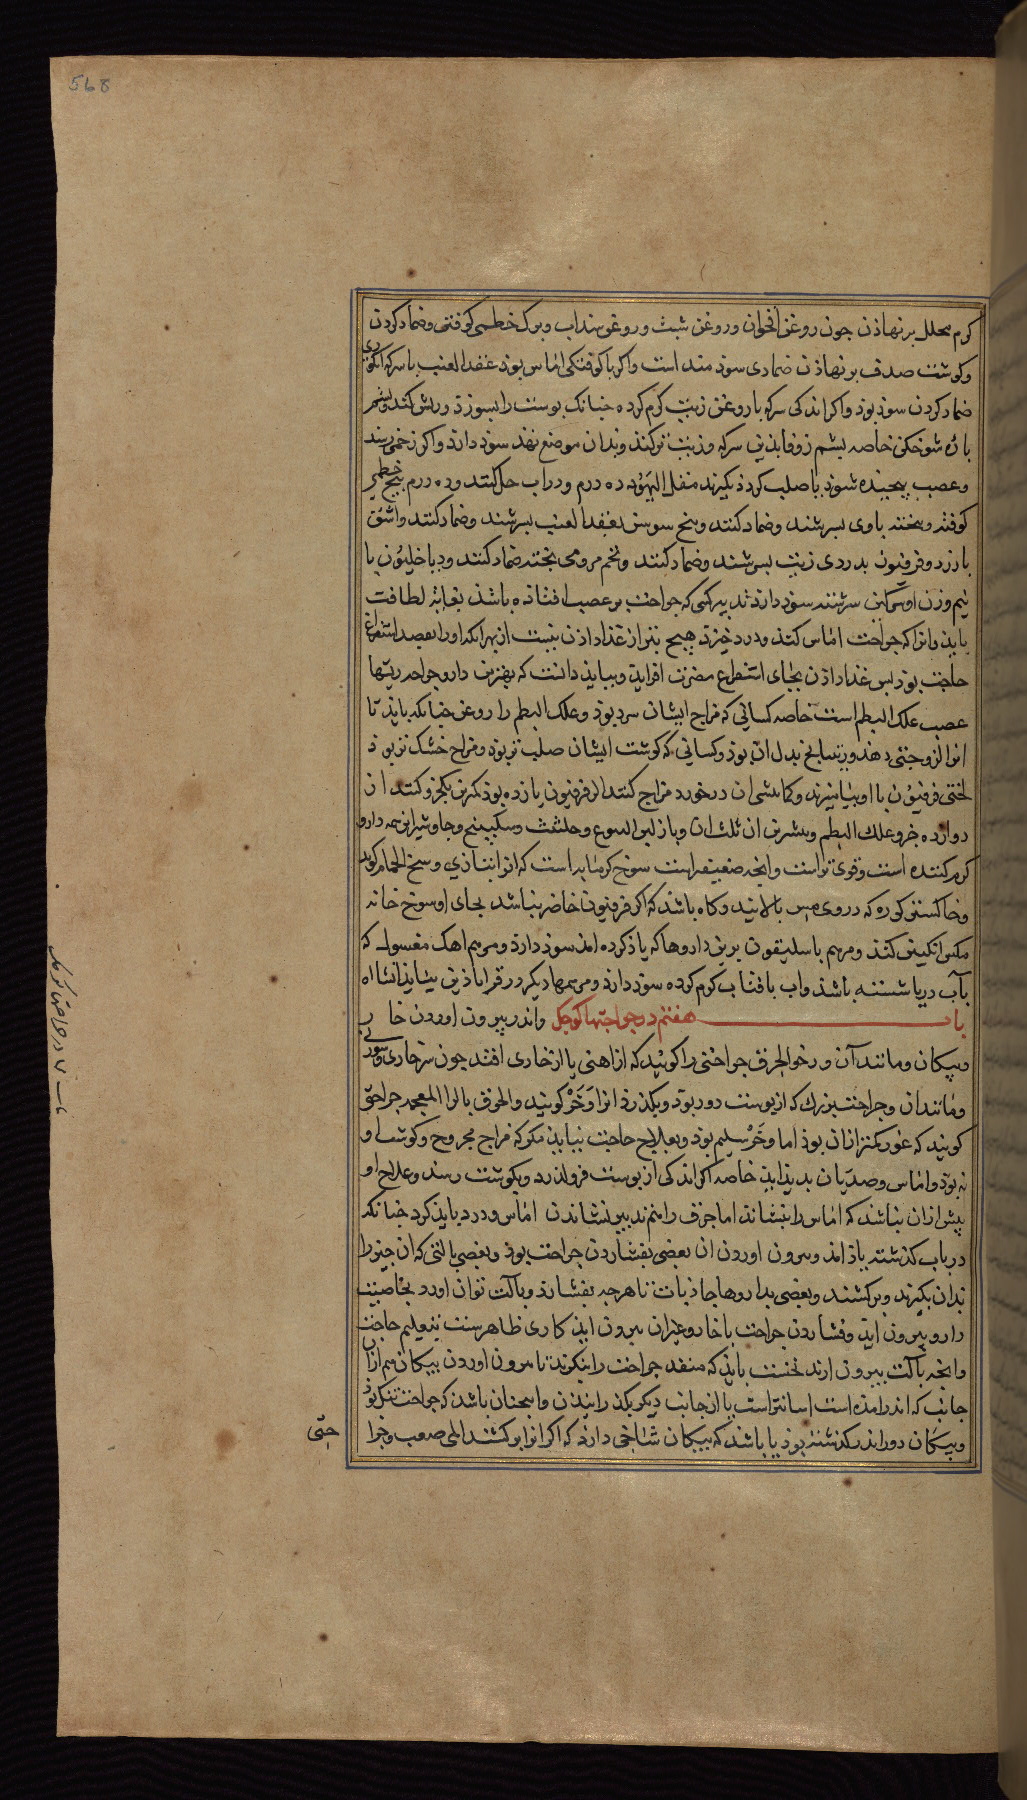 568
کرم محلل برنهاذن جون روغن اقحوان وروغن شبث وروغن سنداب وبرک خطمی کوفتن وضماد کردن
وکوشت صدف برنهاذن ضمادی سوذ منداست واکر با کوفتکی اماس بوذ عنب الثعلب با سرکه انکوری
ضماد کردن سوذ بوذ واکر اندکی سرکه با روغن زیت کرم کرده جنانک بوست را بسوزد وریش کند وپشم
باره شوخکن خاصه پشم زوفا بذین سرکه وزیت تر کنند وبدان موضع نهند سوذ دارد واکر زخمی رسد
وعصب پیجیده شوذ یا صلب کردذ بکیرند مقل الیهود ده درم ودر اب حل کنند وده درم بیخ خطمی
کوفته وبیخته باوی بسرشند وضماد کنند وبیخ سوسن بعقید العنب بسرشند وضماد کنند واشق
بارزد وفرفیون بدردی زیت بسرشند وضماد کنند وتخم مرو می بخته ضماد کنند ودیاخلیون با
نیم وزن او سرشته سوذ دارد تدبیر کسی که جراحت بر عصب افتاذه باشذ بغایة لطافت
بایذ وانرا که جراحت اماس کند ودرد خیزد هیج بتر از غذا داذن نیست از بهر انکه اورا بفصد استفراغ
حاجت بوذ بس غذا داذن بجای استفراغ مضرت افزاید وببایذ دانست که بهترین دارو جراحتها
عصب علک البطم است خاصه کسانی که مزاج ایشان سرد بوذ وعلک البطم را روغن جنانکه بایذ تا
انرا لزوجتی دهد وریتیانج بدل ان بوذ وکسانی که کوشت ایشان صلب تر بوذ ومزاج خشک تر بوذ
لختی فرفیون با او بیامیزند وکمابیشی ان درخورد مزاج کنند اکر فرفیون یازده بوذ کمترین یکجزو کنند از
دوازده جزو علک البطم وبیشترین ان ثلث ان وبازلبن الیتوع وحلتیت وسکبینج وجاوشیر این همه دارو
کرم کننده است وقوی تر است وانجه ضعیفتر است سوخ کرمابه است که انرا بتازی وسخ الحمام کویند
وخاکستر کوره که در روی مس بالایند وکاه باشذ که اکر فرفیون حاضر نباشد بجای او سوخ خانه
مکس انکبین کنند ومرهم باسلیقون برین داروها که یاذ کرده امذ سوذ دارد ومرهم اهک مغسول که
بآب دریا شسته باشذ واب بافتاب کرم کرده سوذ دارد ومرهمها دیکر در قراباذین بیایذ انشا الله
باب هفتم در جراحتها کوجک واندر بیرون اوردن خار
وپیکان ومانند آن ورخوالخرق جراحتی را کویند که از اهنی یا از خاری افتد جون سر خاری وسوزنی
ومانند ان وجراحت بزرک که از پوست دور بوذ وبکذرد انرا وخز کویند والخرق بالرا المعجمه جراحتی
کویند که غورکمتر ازان بوذ اما وخز سلیم بوذ وبعلاج حاجت نیایذ مکر که مزاج مجروح وکوشت او
نه بوذ واماس وضربان بدیذ ایذ خاصه اکر اندکی از بوست فرو کذرد وبکوشت رسد وعلاج او
بیش ازان نباشد که اماس را بنشاند اما خرق را هم تدبیر نشاندن اماس ودرد بایذ کرد جنانکه
در باب کذشته یاذ امذ وبیرون اوردن ان بعضی بفشاردن جراحت بوذ وبعضی بالتی که ان جیز را
بدان بکیرند وبرکشند وبعضی بداروها جاذبات تا هرجه بفشارد وبآلت نتوان اورد بخاصیت
دارو بیرون ایذ وفشاردن جراحت تا خار وغیر ان بیرون ایذ کاری ظاهرست بتعلیم حاجت
وانجه بآلت بیرون ارند نخست بایذ که منفذ جراحت را بنکرند تا بیرون اوردن پیکان هم ازان
جانب که اندر امذه است اسانتر است یا از جانب دیکر بکذرانیدن واینجنان باشذ که جراحت تنک بوذ
وپیکان دور اندر کذشته بوذ یا باشذ که پیکان شاخی دارذ که اکر انرا برکشند المی صعب وخرا
حتی
باب ۷ در جراحتهای کوچک